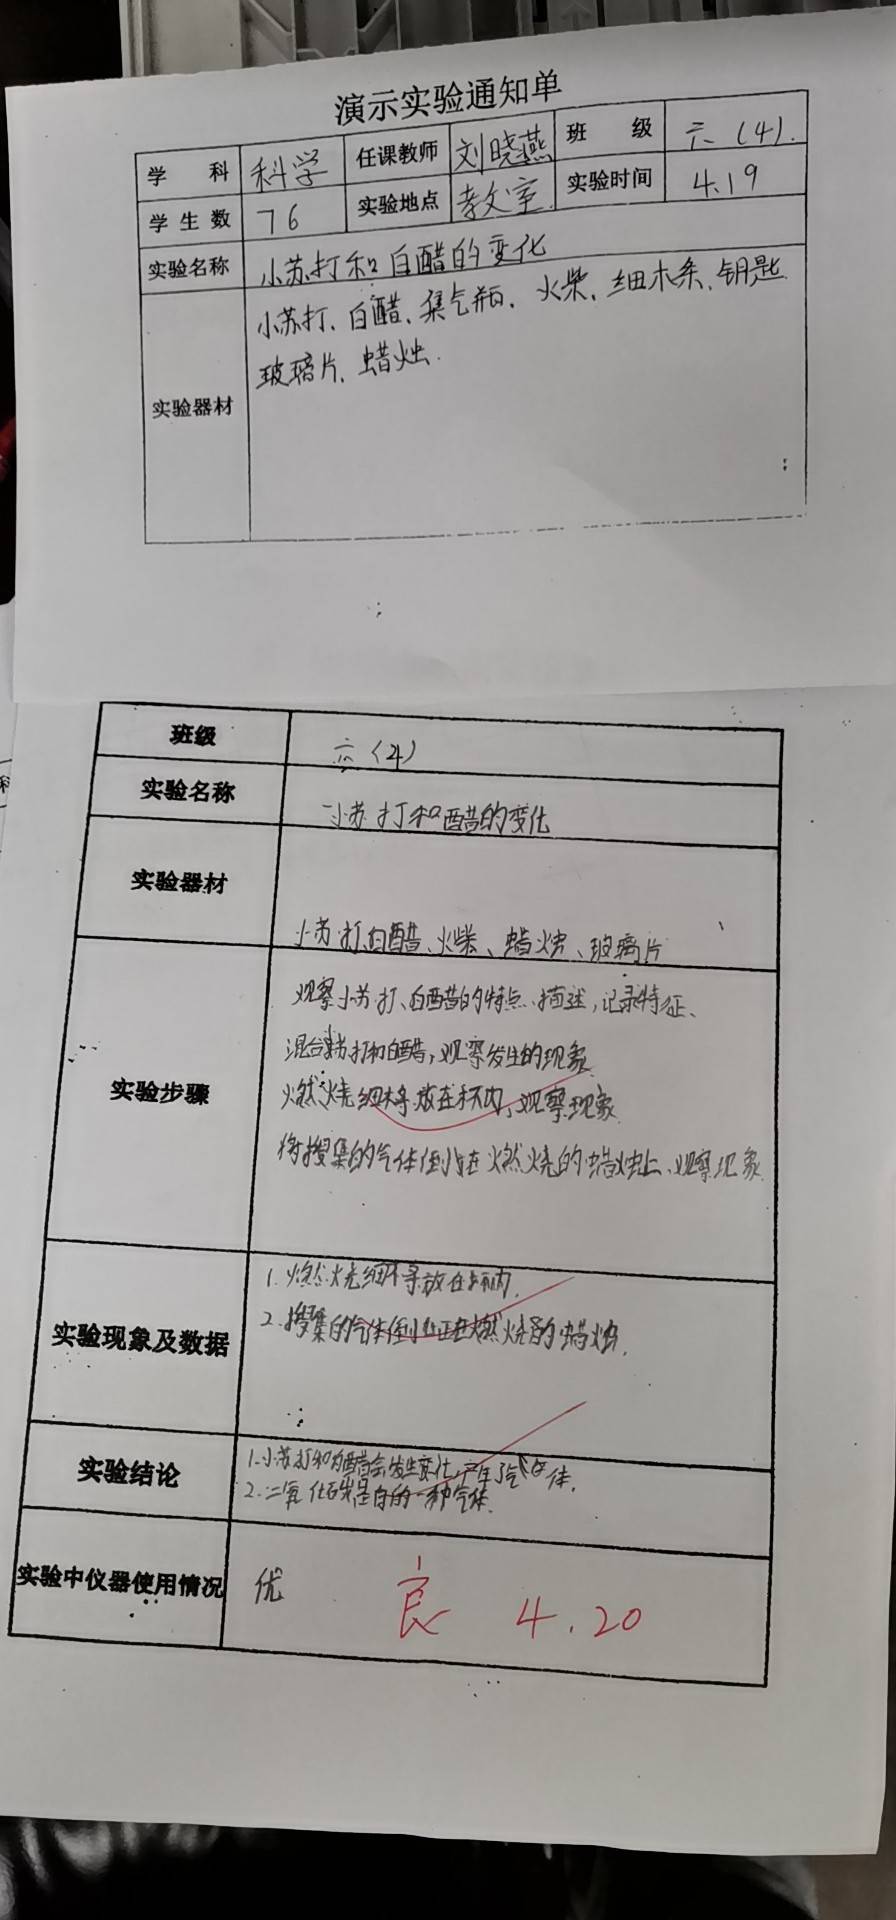 演示实验通知单
学 科 科学 任课教师 刘晓燕 班 级 六(4).
学生数 76 实验地点 教室 实验时间 4.19
实验名称 小苏打和白醋的变化
小苏打、白醋、集气瓶、火柴、细木条、钥匙
实验器材 玻璃片、蜡烛.
班级 六(4)
实验名称 小苏打和醋的变化
实验器材 小苏打、白醋、火柴、蜡烛、玻璃片
观察小苏打、白醋的特点、描述,记录特征、
混合苏打和白醋,观察发生的现象
实验步骤 燃烧细木条放在杯内,观察现象
将搜集的气体倒在燃烧的蜡烛上、观察现象
1.燃烧细木条放在杯内.
实验现象及数据 2.搜集的气体倒在正在燃烧的蜡烛.
实验结论 1.小苏打和白醋会发生变化,产生了气体.
2.二氧化碳是 的一种气体.
实验中仪器使用情况 优 良 4.20